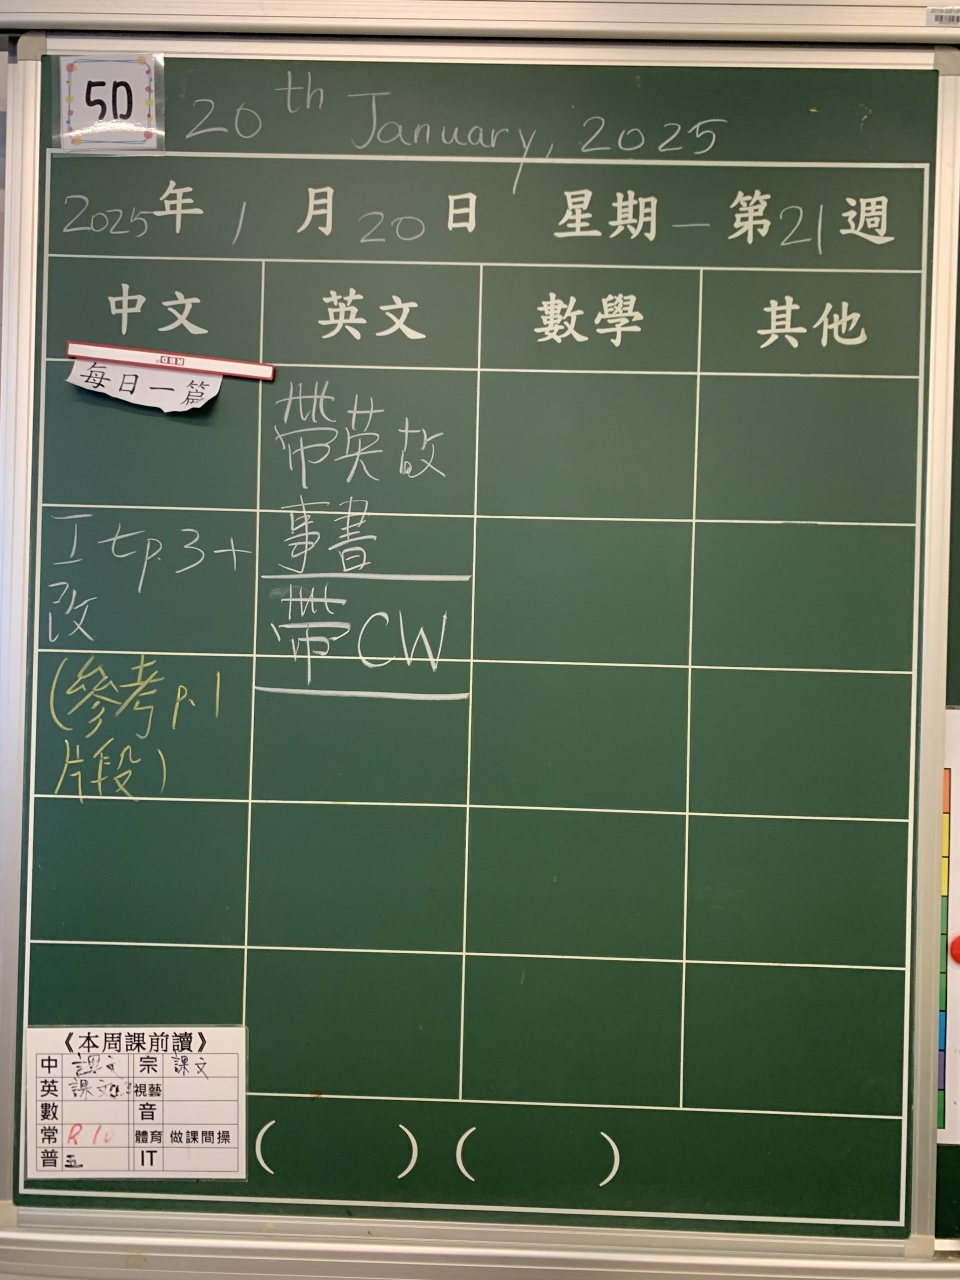 5D
20th January, 2025
2025年1月20日 星期一 第21週
中文 英文 數學 其他
每日一篇
工七p.3+
改
(參考p.1
片段)
帶英故
事書
帶CW
《本周課前讀》
中 課文 宗 課文
英 課文 視藝
數 音
常 R10 體育 做課間操
普 五 IT
( ) ( )